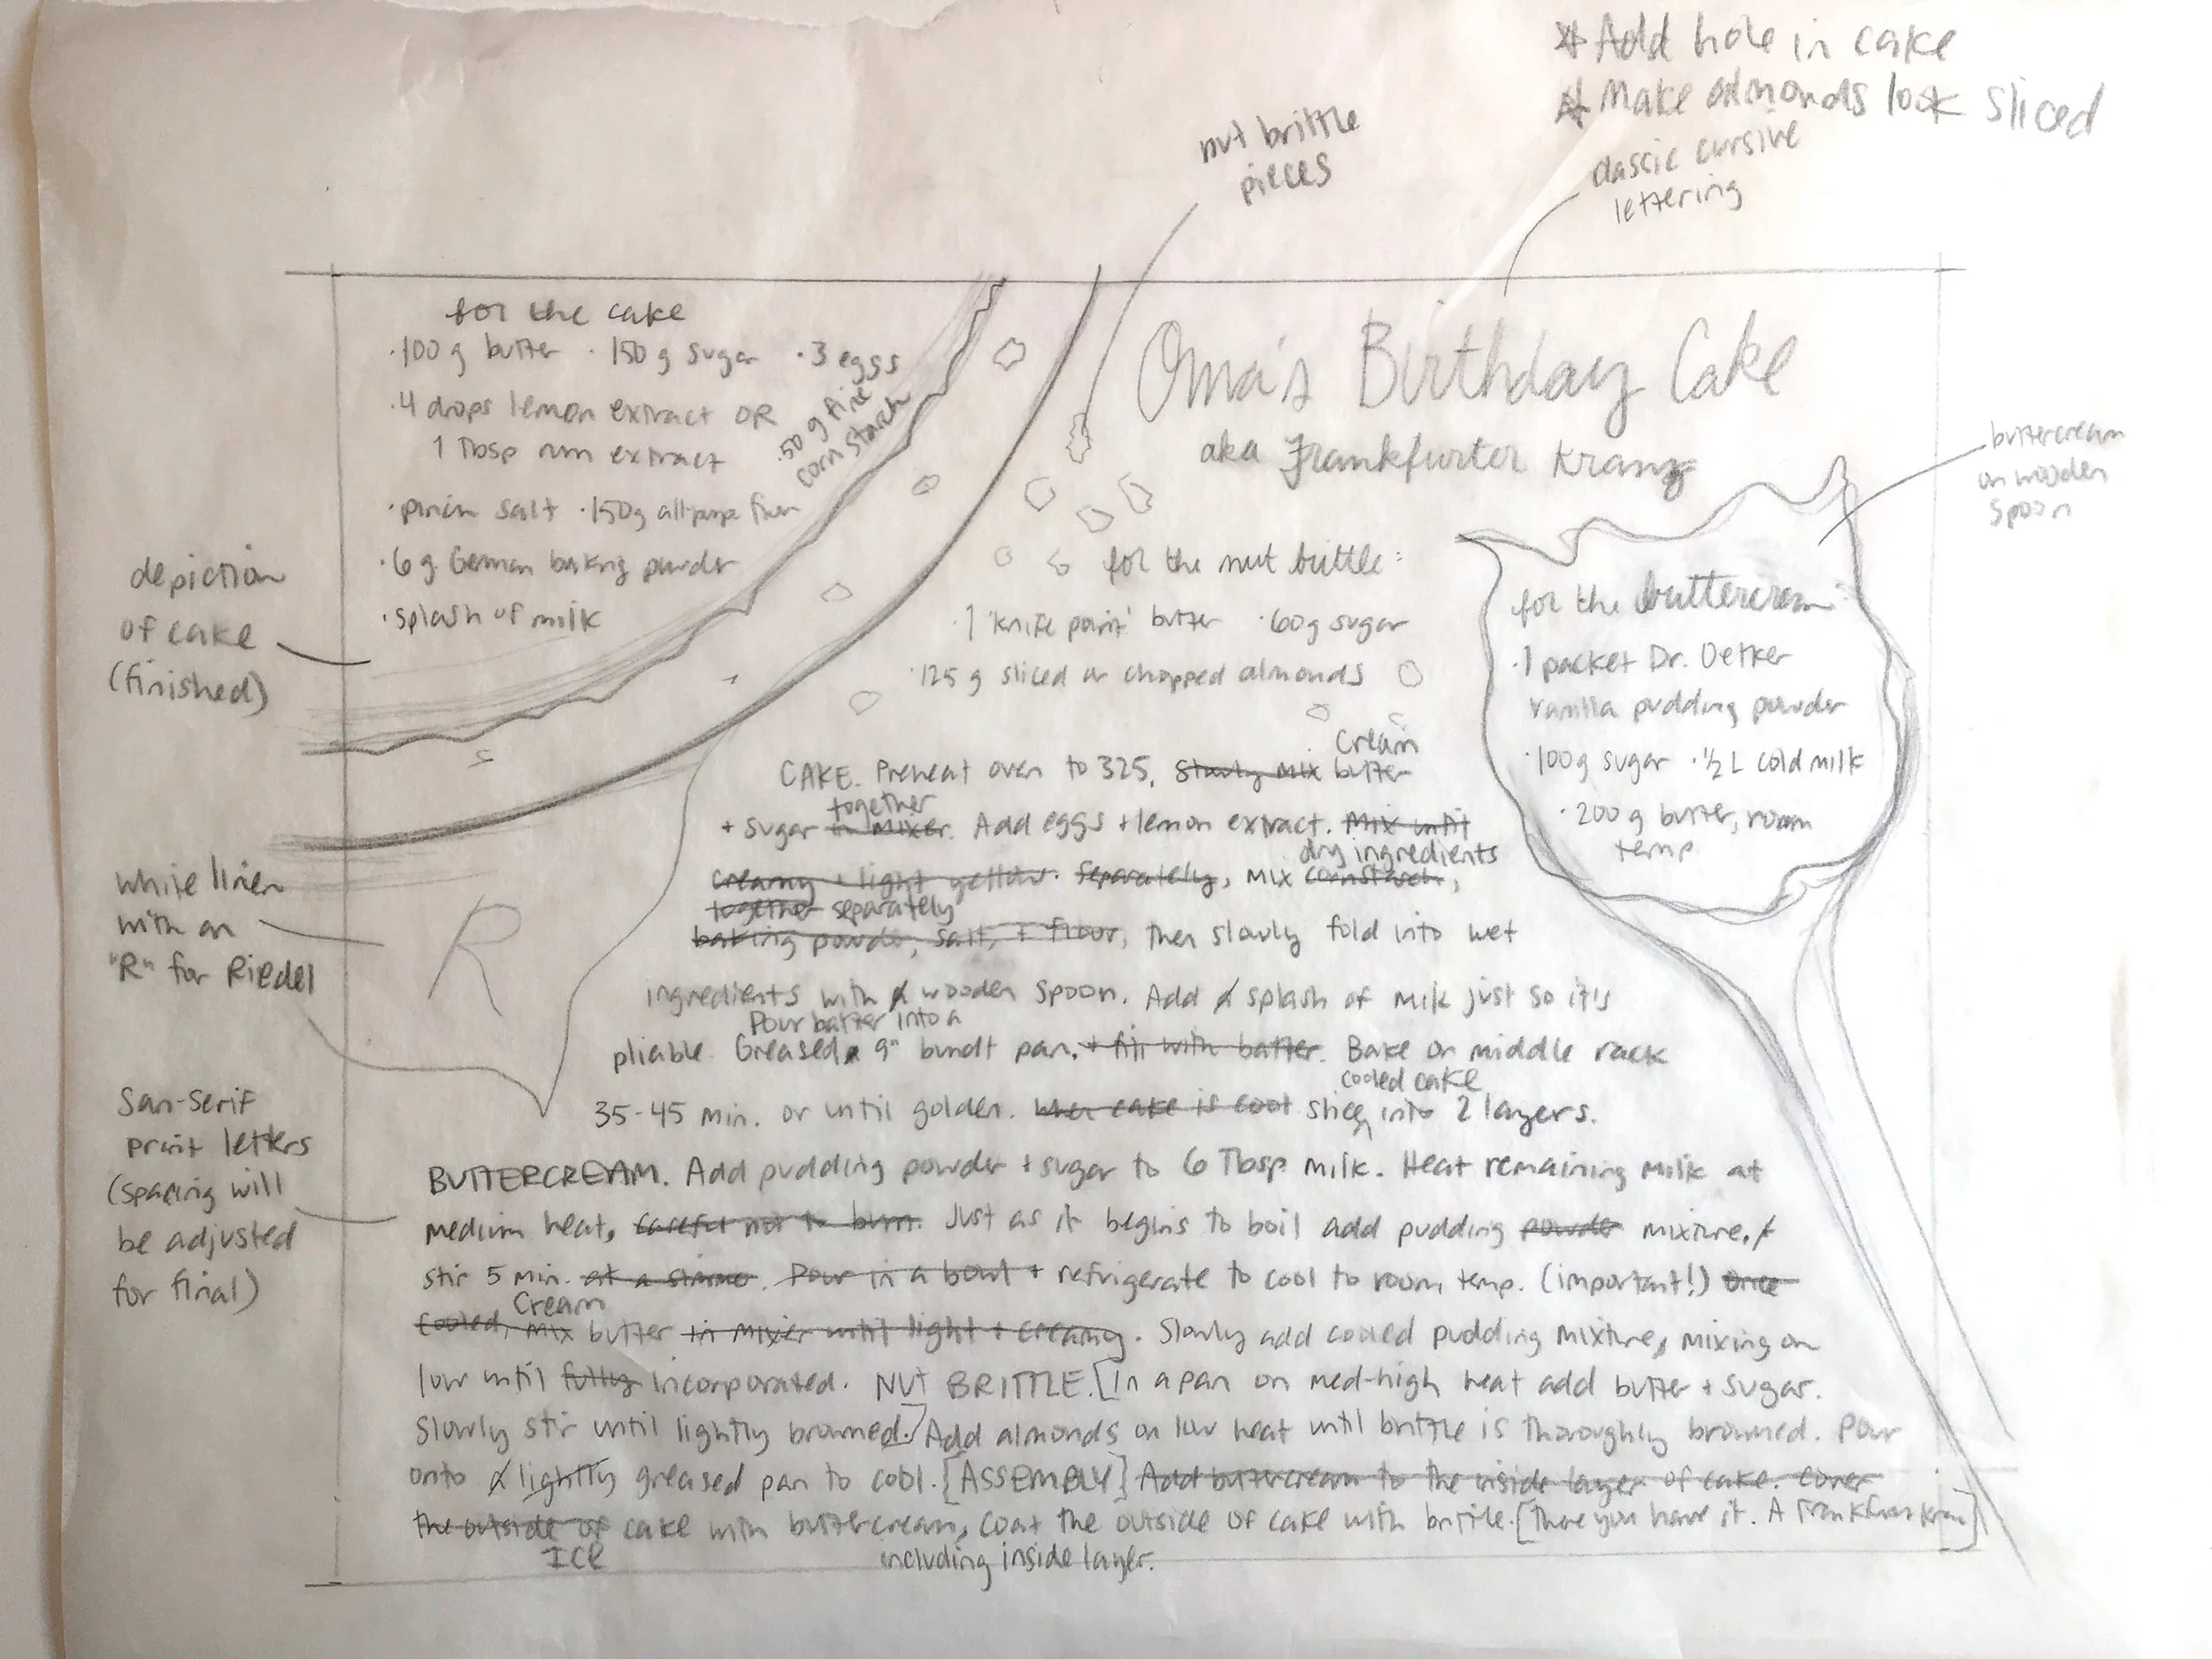 * Add hole in cake
* Make almonds look sliced
classic cursive
lettering
nut brittle
pieces
for the cake
·100 g butter ·150 g sugar ·3 eggs
·4 drops lemon extract OR
1 Tbsp rum extract
·50 g fine
corn starch
·pinch salt ·150g all-purp flour
·6 g German baking powder
·splash of milk
Oma's Birthday Cake
aka Frankfurter Kranz
buttercream
on wooden
spoon
depiction
of cake
(finished)
for the nut brittle:
·1 "knife point" butter ·60g sugar
·125 g sliced or chopped almonds
for the buttercream:
·1 packet Dr. Oetker
vanilla pudding powder
·100g sugar ·½ L cold milk
·200 g butter, room
temp
white linen
with an
"R" for Riedel
R
San-serif
print letters
(spacing will
be adjusted
for final)
Cream
CAKE. Preheat oven to 325. Slowly mix butter
together
+ sugar in mixer. Add eggs + lemon extract. Mix until
dry ingredients
creamy + light yellow. Separately, mix cornstarch,
together separately
baking powder, salt, + flour, then slowly fold into wet
ingredients with a wooden spoon. Add a splash of milk just so it's
Pour batter into a
pliable. Greased 9" bundt pan. + fill with batter. Bake on middle rack
cooled cake
35-45 min. or until golden. When cake is cool slice into 2 layers.
BUTTERCREAM. Add pudding powder + sugar to 6 Tbsp milk. Heat remaining milk at
medium heat, careful not to burn. Just as it begins to boil add pudding powder mixture,
stir 5 min. at a simmer. Pour in a bowl + refrigerate to cool to room temp. (important!) Once
Cream
cooled, mix butter in mixer until light + creamy. Slowly add cooled pudding mixture, mixing on
low until fully incorporated. NUT BRITTLE. [In a pan on med-high heat add butter + sugar.
Slowly stir until lightly browned.] Add almonds on low heat until brittle is thoroughly browned. Pour
onto a lightly greased pan to cool. [ASSEMBLY] Add buttercream to the inside layer of cake. Cover
the outside of cake with buttercream, coat the outside of cake with brittle. [There you have it. A Frankfurter Kranz]
ICE
including inside layer.